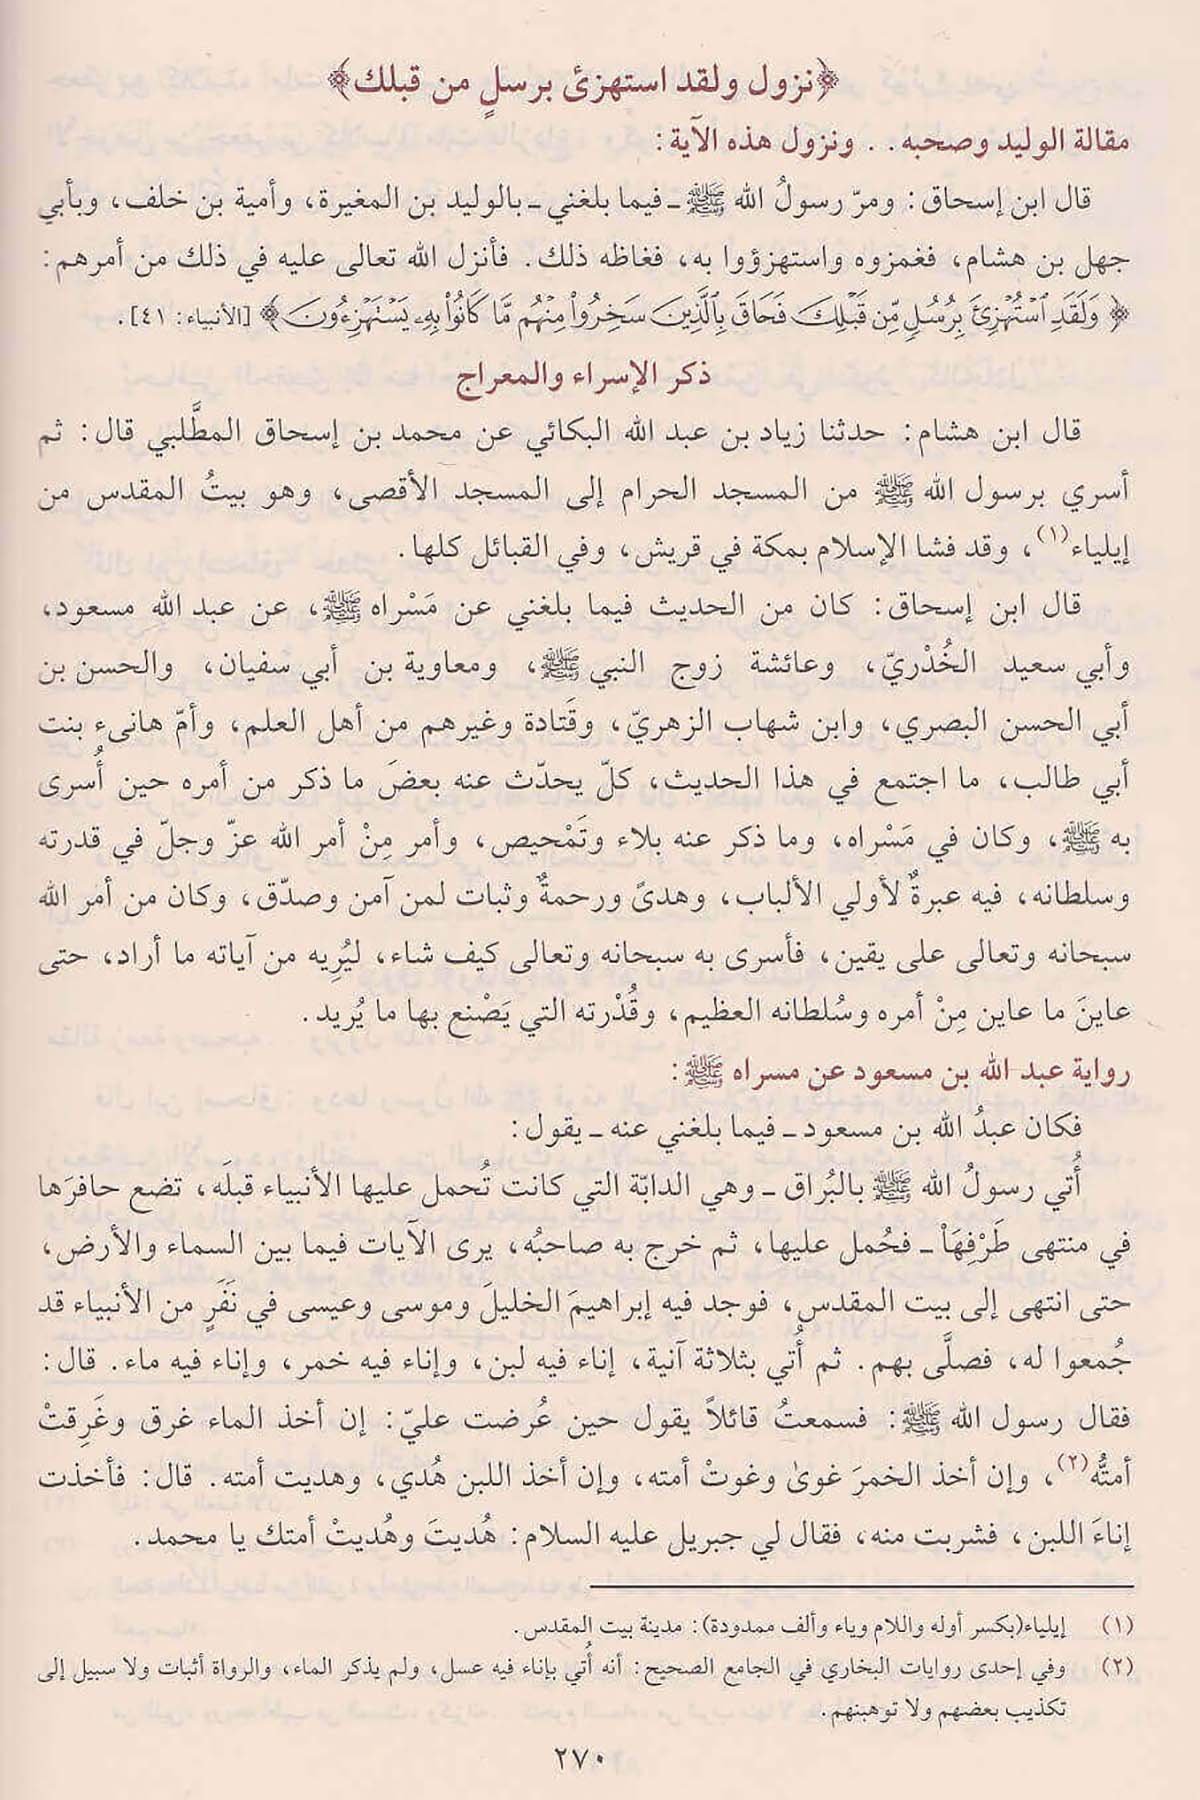 ﴿نزول ولقد استهزئ برسلٍ من قبلك﴾
مقالة الوليد وصحبه. . ونزول هذه الآية:
قال ابن إسحاق: ومرّ رسولُ الله ﷺ ـ فيما بلغني ـ بالوليد بن المغيرة، وأمية بن خلف، وبأبي
جهل بن هشام، فغمزوه واستهزؤوا به، فغاظه ذلك. فأنزل الله تعالى عليه في ذلك من أمرهم:
﴿وَلَقَدِ ٱسْتُهْزِئَ بِرُسُلٍ مِّن قَبْلِكَ فَحَاقَ بِٱلَّذِينَ سَخِرُوا۟ مِنْهُم مَّا كَانُوا۟ بِهِۦ يَسْتَهْزِءُونَ﴾ [الأنبياء: ٤١].
ذكر الإسراء والمعراج
قال ابن هشام: حدثنا زياد بن عبد الله البكائي عن محمد بن إسحاق المطَّلبي قال: ثم
أسري برسول الله ﷺ من المسجد الحرام إلى المسجد الأقصى، وهو بيتُ المقدس من
إيلياء(١)، وقد فشا الإسلام بمكة في قريش، وفي القبائل كلها.
قال ابن إسحاق: كان من الحديث فيما بلغني عن مَسْراه ﷺ، عن عبد الله مسعود،
وأبي سعيد الخُدْريّ، وعائشة زوج النبي ﷺ، ومعاوية بن أبي سفيان، والحسن بن
أبي الحسن البصري، وابن شهاب الزهريّ، وقَتادة وغيرهم من أهل العلم، وأمّ هانىء بنت
أبي طالب، ما اجتمع في هذا الحديث، كلّ يحدّث عنه بعضَ ما ذكر من أمره حين أُسرى
به ﷺ، وكان في مَسْراه، وما ذكر عنه بلاء وتَمْحيص، وأمر مِنْ أمر الله عزّ وجلّ في قدرته
وسلطانه، فيه عبرةٌ لأولي الألباب، وهدىً ورحمةٌ وثبات لمن آمن وصدّق، وكان من أمر الله
سبحانه وتعالى على يقين، فأسرى به سبحانه وتعالى كيف شاء، ليُرِيه من آياته ما أراد، حتى
عاينَ ما عاين مِنْ أمره وسُلطانه العظيم، وقُدْرته التي يَصْنع بها ما يُريد.
رواية عبد الله بن مسعود عن مسراه ﷺ:
فكان عبدُ الله بن مسعود ـ فيما بلغني عنه ـ يقول:
أُتي رسولُ الله ﷺ بالبُراق ـ وهي الدابّة التي كانت تُحمل عليها الأنبياء قبلَه، تضع حافرَها
في منتهى طَرْفِهَا ـ فحُمل عليها، ثم خرج به صاحبُه، يرى الآيات فيما بين السماء والأرض،
حتى انتهى إلى بيت المقدس، فوجد فيه إبراهيمَ الخليلَ وموسى وعيسى في نَفَرٍ من الأنبياء قد
جُمعوا له، فصلَّى بهم. ثم أُتي بثلاثة آنية، إناء فيه لبن، وإناء فيه خمر، وإناء فيه ماء. قال:
فقال رسول الله ﷺ: فسمعتُ قائلاً يقول حين عُرضت عليّ: إن أخذ الماء غرق وغَرِقتْ
أمتُه(٢)، وإن أخذ الخمرَ غوىٰ وغوتْ أمته، وإن أخذ اللبن هُدي، وهديت أمته. قال: فأخذت
إناءَ اللبن، فشربت منه، فقال لي جبريل عليه السلام: هُديتَ وهُديتْ أمتك يا محمد.
(١) إيلياء(بكسر أوله واللام وياء وألف ممدودة): مدينة بيت المقدس.
(٢) وفي إحدى روايات البخاري في الجامع الصحيح: أنه أُتي بإناء فيه عسل، ولم يذكر الماء، والرواة أثبات ولا سبيل إلى
تكذيب بعضهم ولا توهينهم.
٢٧٠